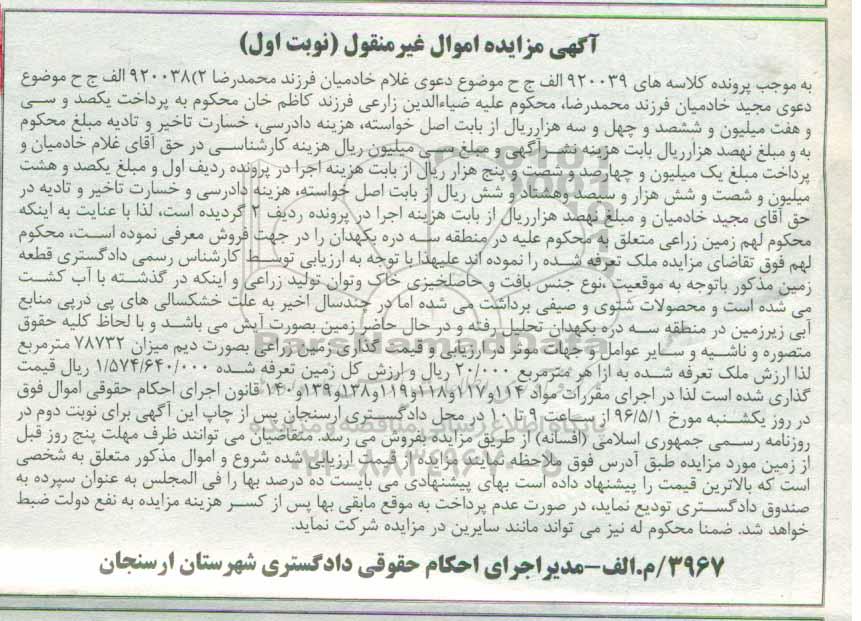 آگهی مزایده اموال غیرمنقول (نوبت اول)
به موجب پرونده کلاسه های ۹۲۰۰۳۹ الف ج ح موضوع دعوی غلام خادمیان فرزند محمدرضا ۲)۹۲۰۰۳۸ الف ج ح موضوع
دعوی مجید خادمیان فرزند محمدرضا، محکوم علیه ضیاءالدین زارعی فرزند کاظم خان محکوم به پرداخت یکصد و سی
و هفت میلیون و ششصد و چهل و سه هزارریال از بابت اصل خواسته، هزینه دادرسی، خسارت تاخیر و تادیه مبلغ محکوم
به و مبلغ نهصد هزارریال بابت هزینه نشر آگهی و مبلغ سی میلیون ریال هزینه کارشناسی در حق آقای غلام خادمیان و
پرداخت مبلغ یک میلیون و چهارصد و شصت و پنج هزار ریال از بابت هزینه اجرا در پرونده ردیف اول و مبلغ یکصد و هشت
میلیون و شصت و شش هزار و سیصد وهشتاد و شش ریال از بابت اصل خواسته، هزینه دادرسی و خسارت تاخیر و تادیه در
حق آقای مجید خادمیان و مبلغ نهصد هزارریال از بابت هزینه اجرا در پرونده ردیف ۲ گردیده است، لذا با عنایت به اینکه
محکوم لهم زمین زراعی متعلق به محکوم علیه در منطقه سه دره یکهدان را در جهت فروش معرفی نموده است، محکوم
لهم فوق تقاضای مزایده ملک تعرفه شده را نموده اند علیهذا با توجه به ارزیابی توسط کارشناس رسمی دادگستری قطعه
زمین مذکور باتوجه به موقعیت ،نوع جنس بافت و حاصلخیزی خاک وتوان تولید زراعی و اینکه در گذشته با آب کشت
می شده است و محصولات شتوی و صیفی برداشت می شده اما در چندسال اخیر به علت خشکسالی های پی درپی منابع
آبی زیرزمین در منطقه سه دره یکهدان تحلیل رفته و در حال حاضر زمین بصورت آیش می باشد و با لحاظ کلیه حقوق
متصوره و ناشیه و سایر عوامل و جهات موثر در ارزیابی و قیمت گذاری زمین زراعی بصورت دیم میزان ۷۸۷۳۲ مترمربع
لذا ارزش ملک تعرفه شده به ازا هر مترمربع ۲۰/۰۰۰ ریال و ارزش کل زمین تعرفه شده ۱/۵۷۴/۶۴۰/۰۰۰ ریال قیمت
گذاری شده است لذا در اجرای مقررات مواد ۱۱۴و۱۱۷و۱۱۸و۱۱۹و۱۳۸و۱۳۹و۱۴۰ قانون اجرای احکام حقوقی اموال فوق
در روز یکشنبه مورخ ۹۶/۵/۱ از ساعت ۹ تا ۱۰ در محل دادگستری ارسنجان پس از چاپ این آگهی برای نوبت دوم در
روزنامه رسمی جمهوری اسلامی (افسانه) از طریق مزایده بفروش می رسد. متقاضیان می توانند ظرف مهلت پنج روز قبل
از زمین مورد مزایده طبق آدرس فوق ملاحظه نمایند مزایده از قیمت ارزیابی شده شروع و اموال مذکور متعلق به شخصی
است که بالاترین قیمت را پیشنهاد داده است بهای پیشنهادی می بایست ده درصد بها را فی المجلس به عنوان سپرده به
صندوق دادگستری تودیع نماید، در صورت عدم پرداخت به موقع مابقی بها پس از کسر هزینه مزایده به نفع دولت ضبط
خواهد شد. ضمنا محکوم له نیز می تواند مانند سایرین در مزایده شرکت نماید.
۳۹۶۷/م.الف-مدیراجرای احکام حقوقی دادگستری شهرستان ارسنجان
ParsNamadData
پایگاه اطلاع رسانی مناقصه و مزایده